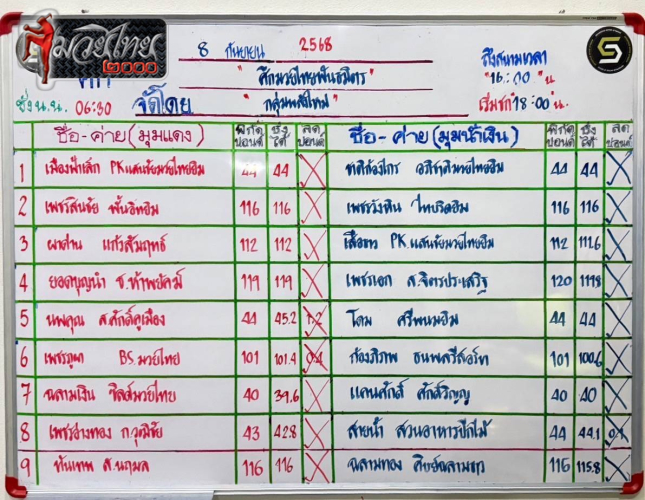 มวยไทย
2000
8 กันยายน 2568
ถึงสนามเวลา
"16:00" น.
ศึก "ศึกมวยไทยพันธมิตร"
ชั่ง น.น. 06:30 จัดโดย "กลุ่มพลังใหม่" เริ่มชก 18:00 น.
ชื่อ-ค่าย (มุมแดง) พิกัดปอนด์ ชั่งได้ ลดปอนด์ ชื่อ-ค่าย (มุมน้ำเงิน) พิกัดปอนด์ ชั่งได้ ลดปอนด์
1 เมืองฟ้าเล็ก PK.แสนชัยมวยไทยยิม 44 44 44 44
2 เพชรสินชัย 116 116 เพชรวังหิน 116 116
3 ผาด่าน แก้วสัมฤทธิ์ 112 112 เสือขาว PK.แสนชัยมวยไทยยิม 112 111.6
4 ยอดบุญนำ ช.ห้าพยัคฆ์ 119 119 เพชรเอก ส.จิตรประเสริฐ 120 119.8
5 นพคุณ ส.ศักดิ์คูเมือง 44 45.2 1.2 โดม ศรีพนมยิม 44 44
6 เพชรภูผา BS.มวยไทย 101 101.4 0.4 ก้องภิภพ ธนพลรีสอร์ท 101 100.6
7 ฉลามเงิน ชิลด์มวยไทย 40 39.6 แดนศักดิ์ ศักดิ์วิญญู 40 40
8 เพชรอ่างทอง ก.วุฒิชัย 43 42.8 สายน้ำ สวนอาหารปีกไม้ 44 44.1 0.1
9 ทันเทพ ส.นฤมล 116 116 ฉลามทอง ศิษย์ฉลามขาว 116 115.8